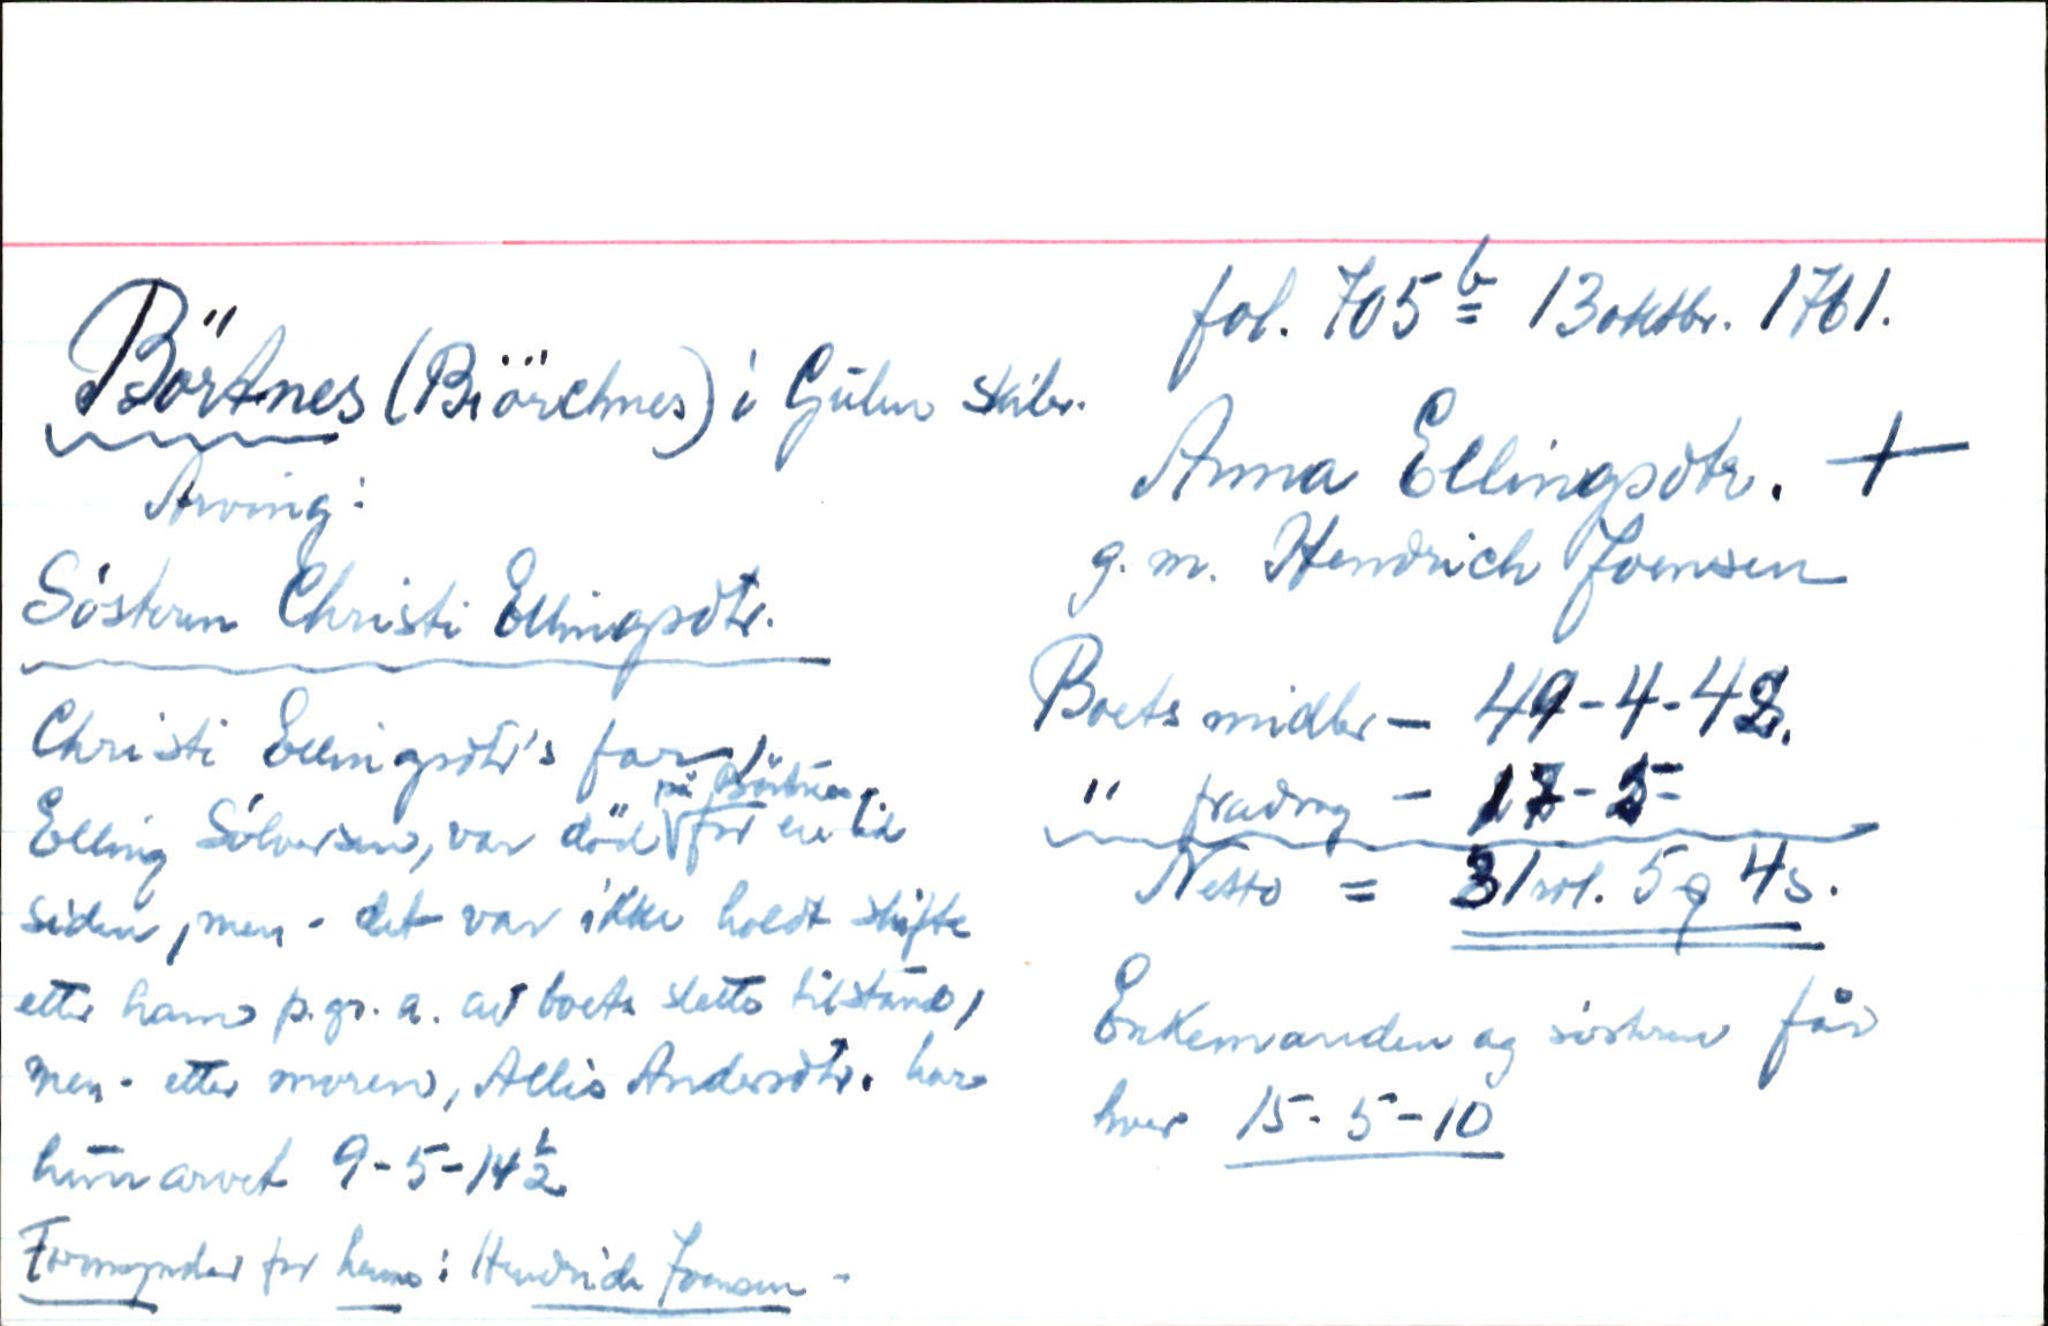 fol. 705 b 13 oktbr. 1761.
Börtnes (Biörchnes) i Gulen skibr.
Anna Ellingsdtr. +
g. m. Hendrich Joensen
Arving:
Søsteren Christi Ellingsdtr.
Boets midler – 49-4-4 s.
" fradrag – 17-5
Netto = 31 rdl. 5 q 4 s.
Enkemanden og søsteren får
hver 15-5-10
Christi Ellingsdtr's far,
Elling Sølversen, var död på Börtnes for en tid
siden, men - det var ikke holdt skifte
etter ham p. gr. a. av boets slette tilstand,
men - etter moren, Allis Andersdtr. har
hun arvet 9-5-14 ½
Formynder for henne: Hendrich Joensen -